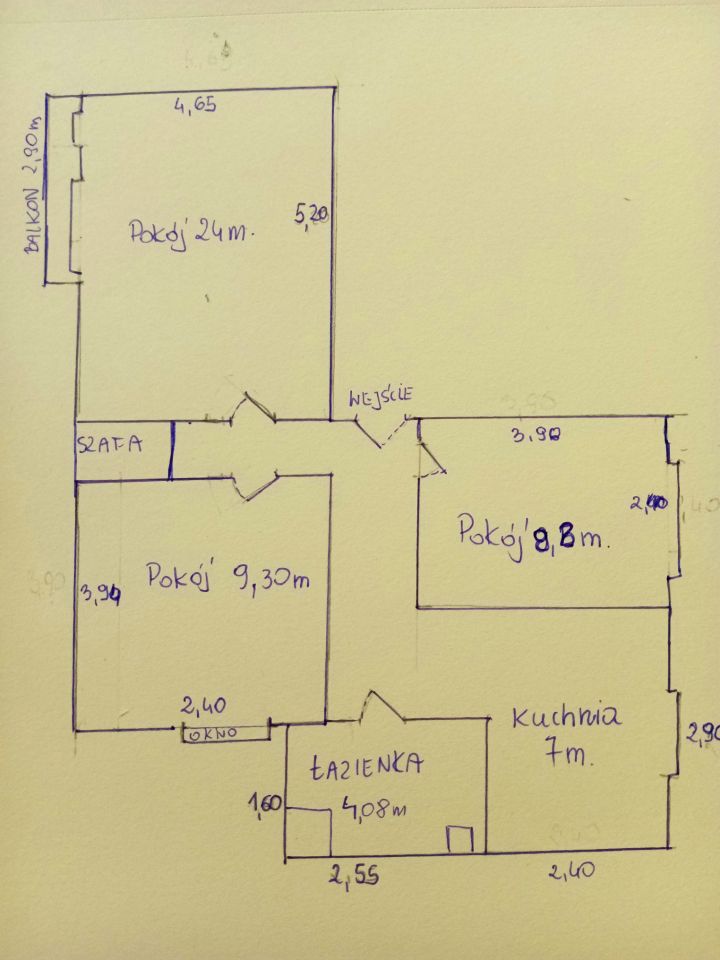 4,65
BALKON 2,90m
5,20
Pokój 24m.
WEJŚCIE
SZAFA
3,90
2,40
Pokój 9,3m.
Pokój 9,30m
3,90
2,40
OKNO
Kuchnia
7m.
2,90
ŁAZIENKA
1,60
4,08m
2,55
2,40